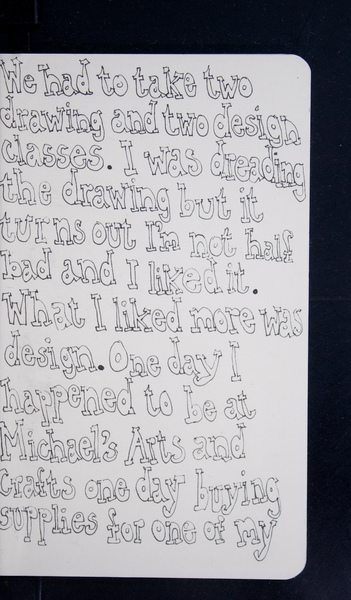 We had to take two
drawing and two design
classes. I was dreading
the drawing but it
turns out I'm not half
bad and I liked it.
What I liked more was
design. One day I
happened to be at
Michael's Arts and
Crafts one day buying
supplies for one of my